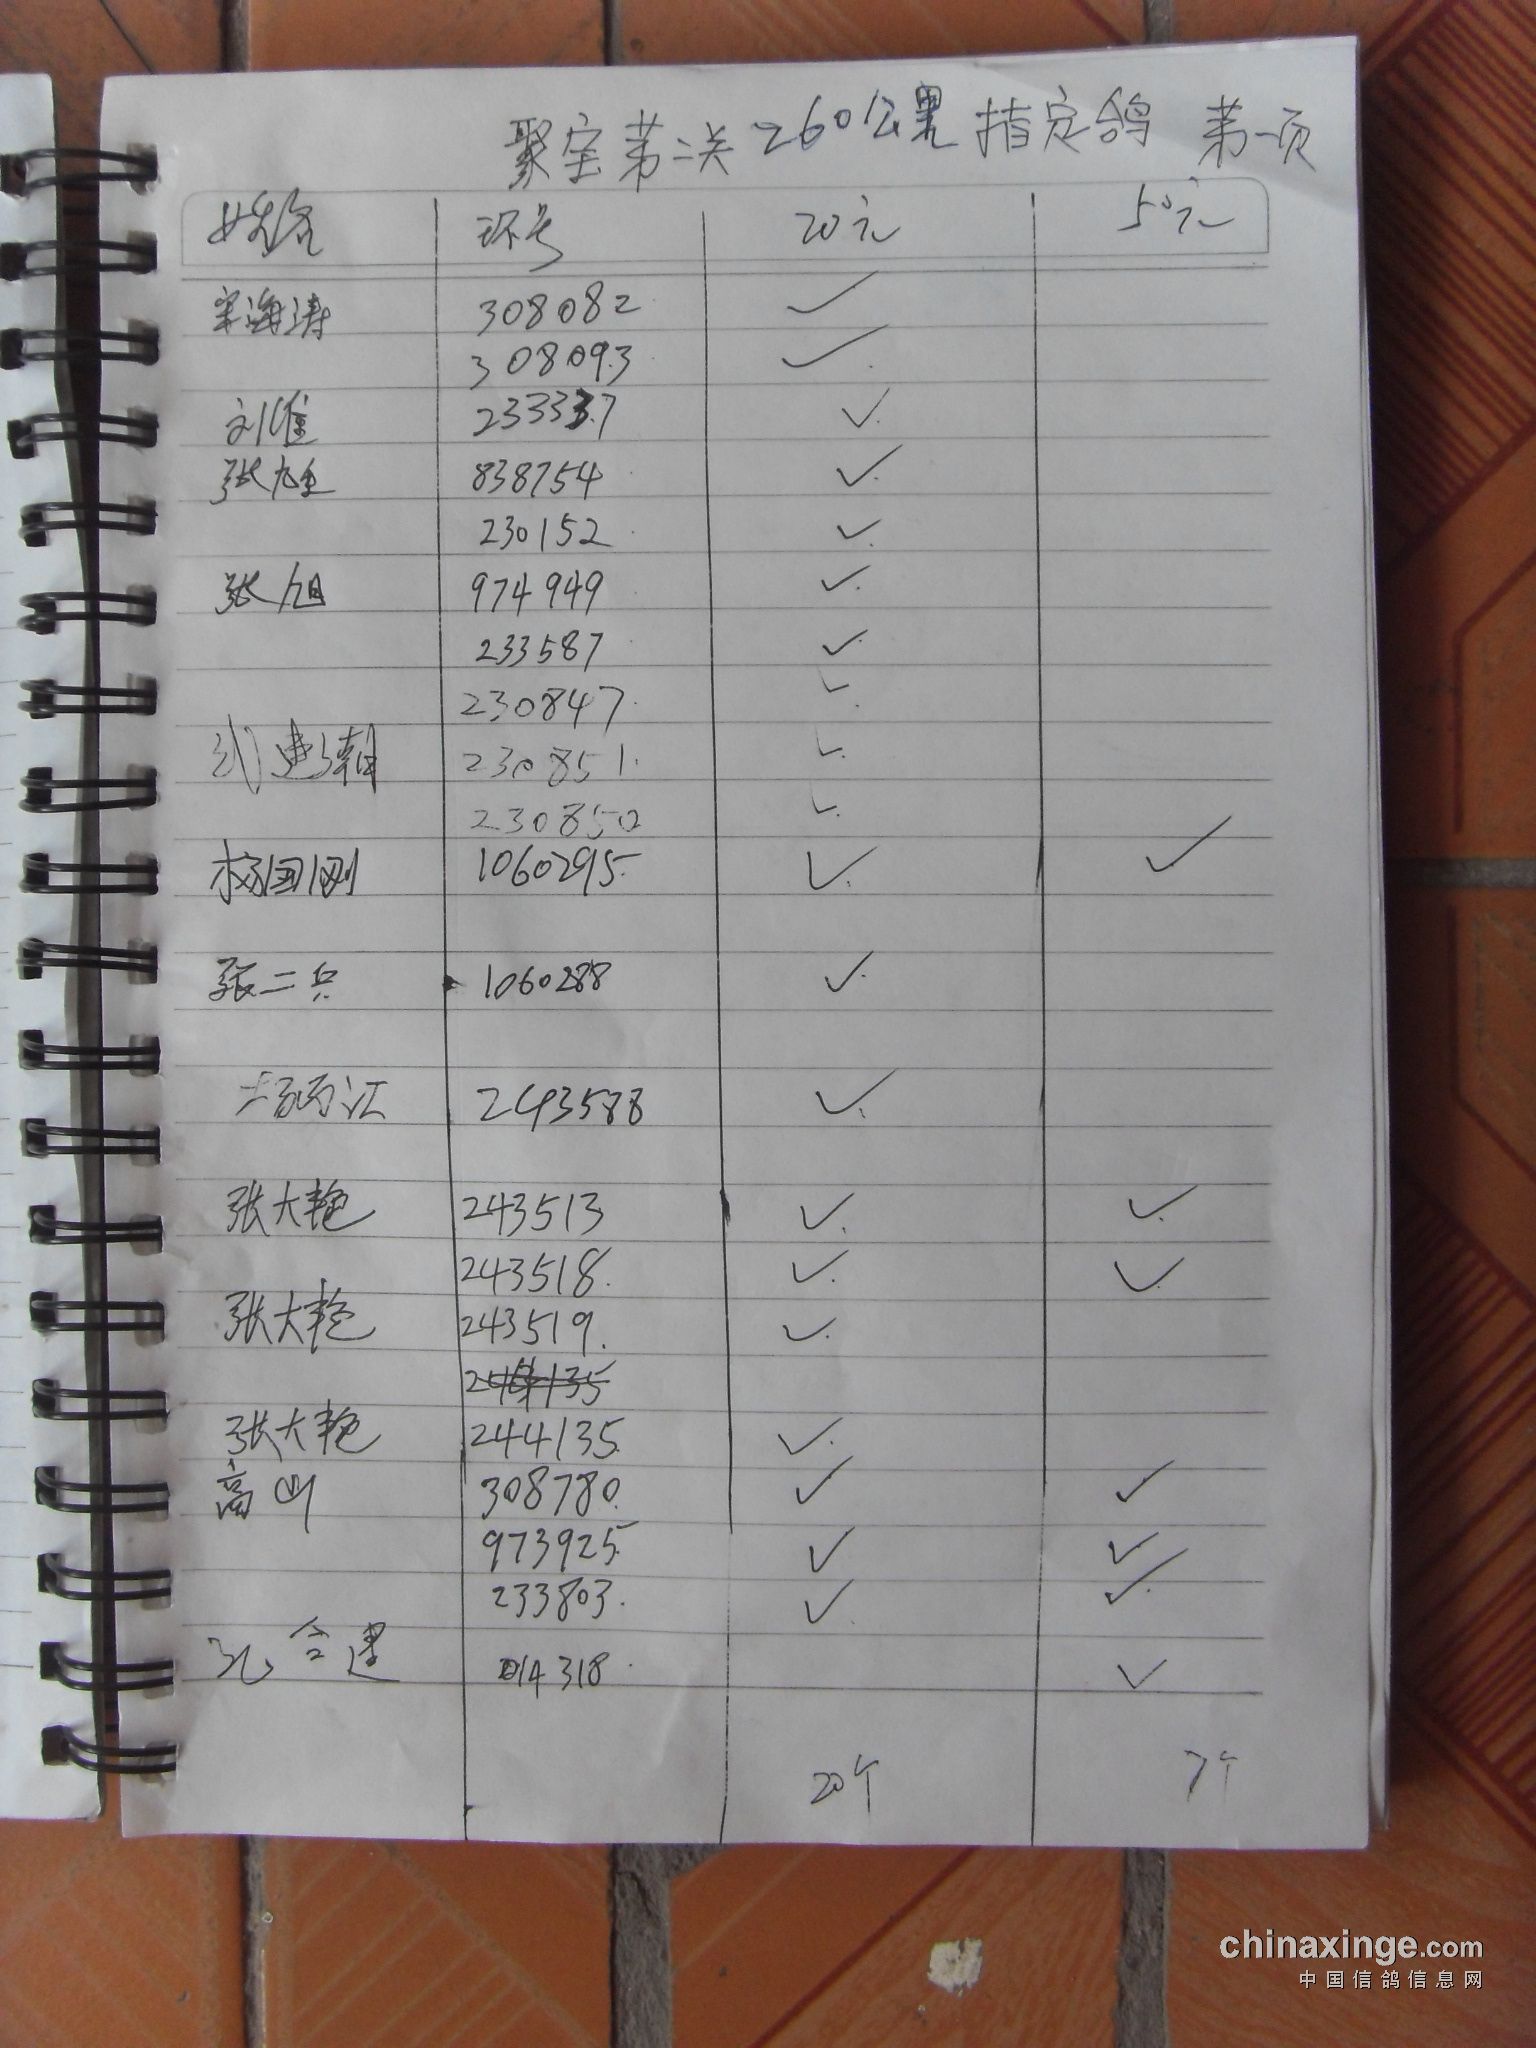 聚宝第二关260公里指定鸽 第一页
姓名 环号 20元 50元
宋海涛 308082 ✓
308093 ✓
刘 233337 ✓
张 838754 ✓
230152 ✓
张旭 974949 ✓
233587 ✓
230847 ✓
刘建朝 230851 ✓
230850 ✓
杨国刚 1060295 ✓ ✓
张二兵 1060288 ✓
243588 ✓
张大艳 243513 ✓ ✓
243518 ✓ ✓
张大艳 243519 ✓
张大艳 244135 ✓
高山 308780 ✓ ✓
973925 ✓ ✓
233803 ✓ ✓
014318 ✓
20个 7个
chinaxinge.com
中国信鸽信息网